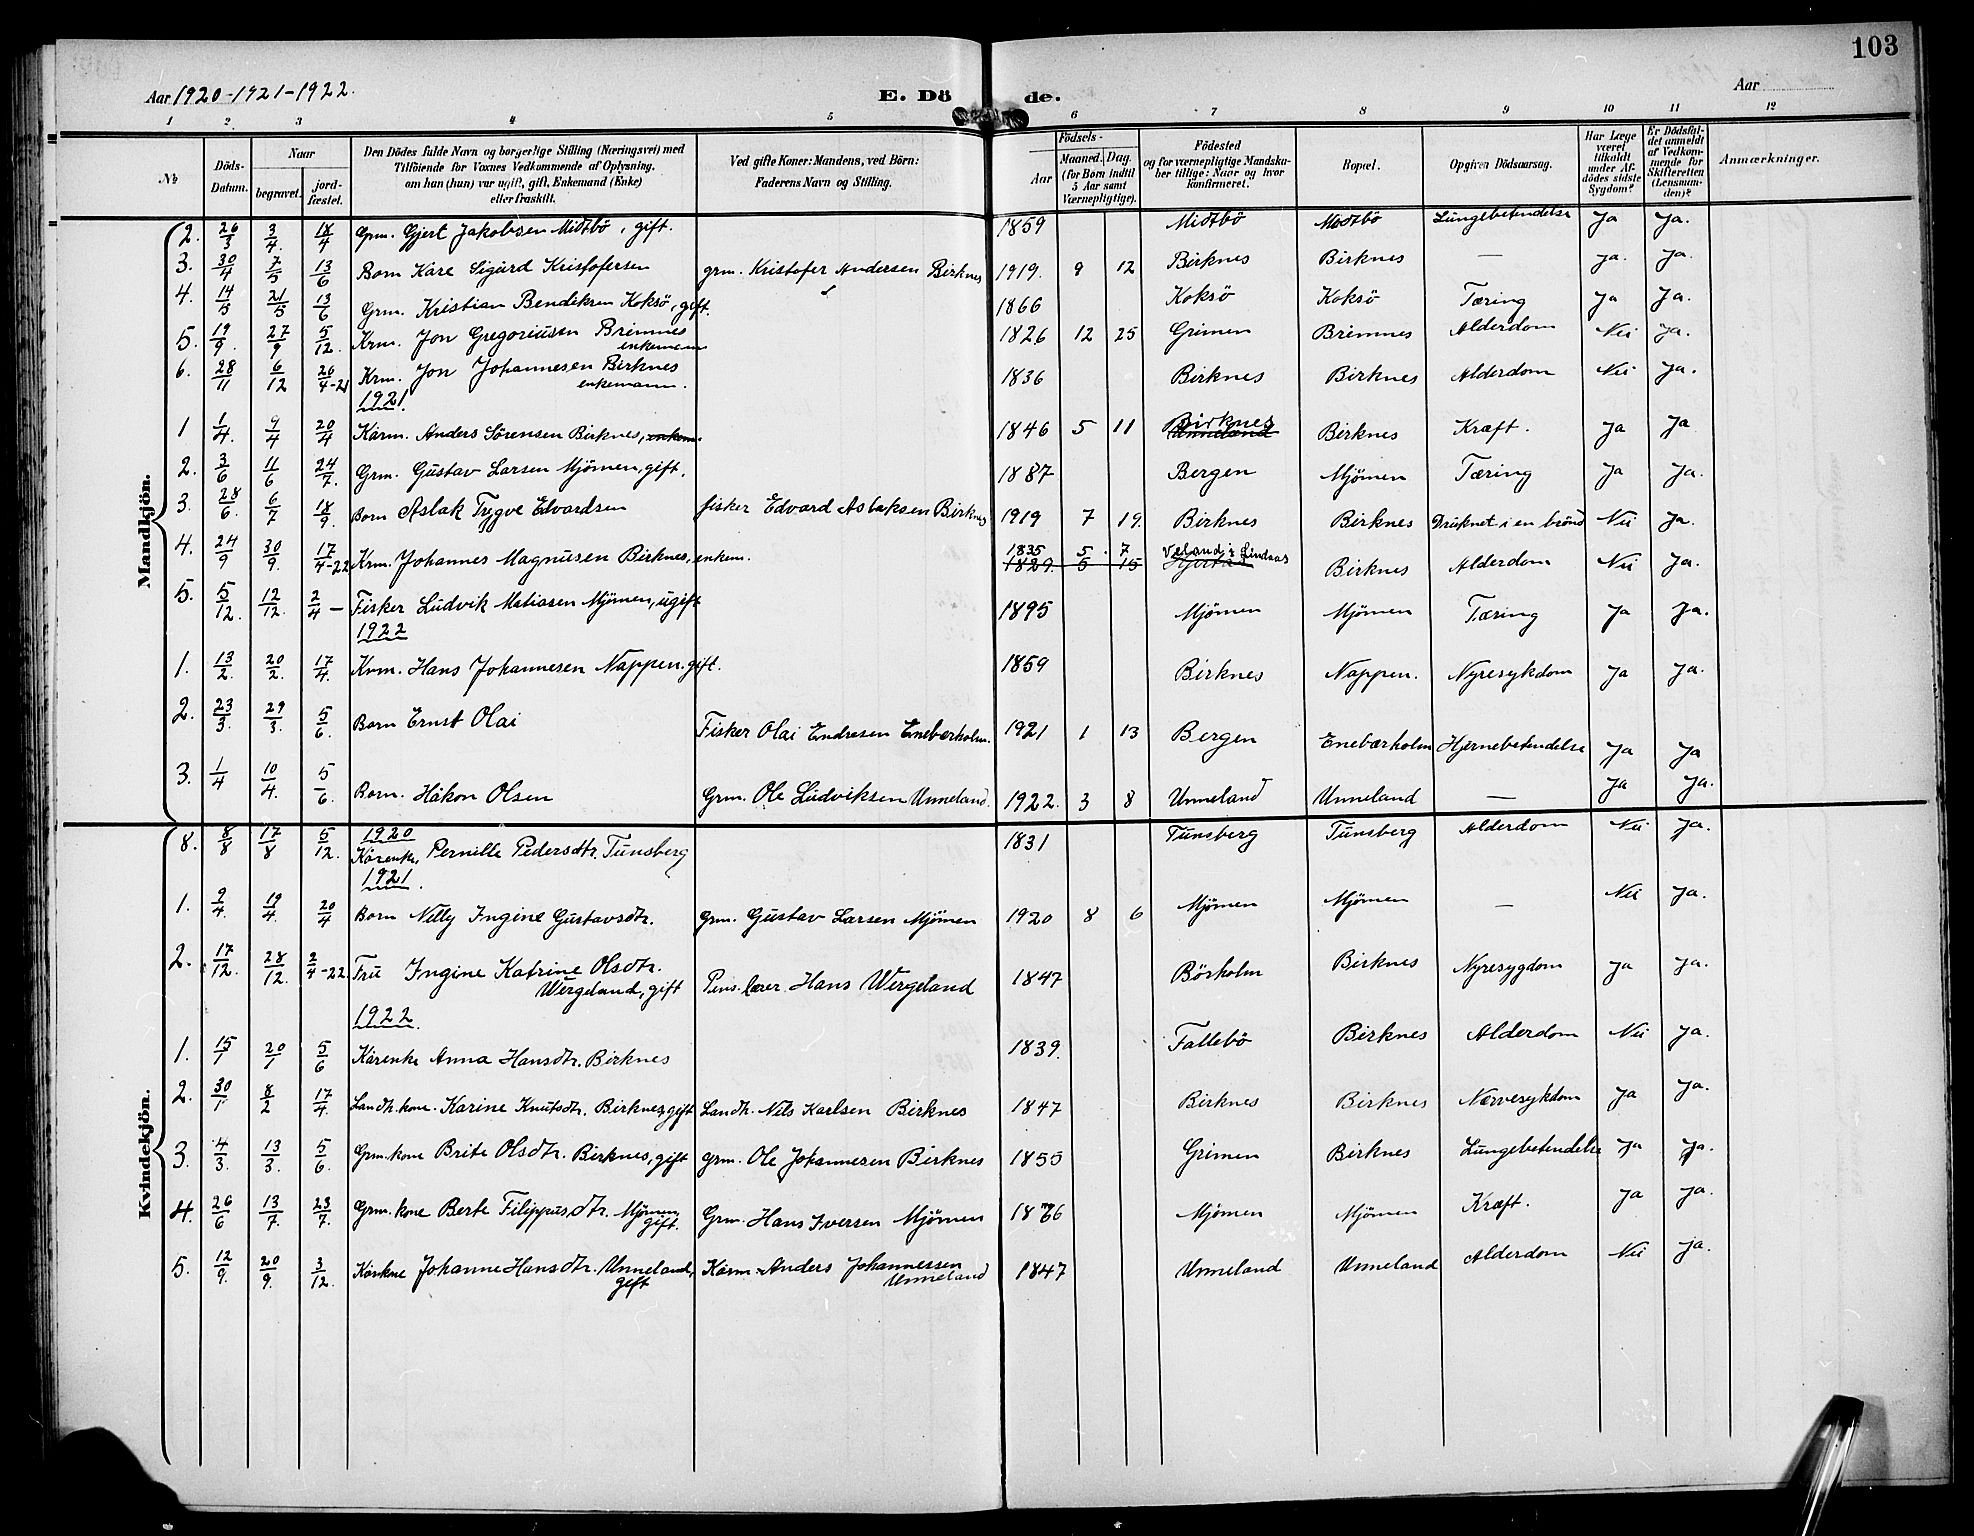 103
Aar 1920-1921-1922. E. Döde. Aar
1 2. 3 4 5 6 7 8 9 10 11 12
№ Döds-Datum. Naar begravet. jord-fæstet. Den Dödes fulde Navn og borgerlige Stilling (Næringsvei) med Tilföiende for Voxnes Vedkommende af Oplysning, om han (hun) var ugift, gift, Enkemand (Enke) eller fraskilt. Ved gifte Koner: Mandens, ved Börn: Faderens Navn og Stilling. Födsels- Aar Maaned. Dag. (for Born indtil 5 Aar samt Værnepligtige). Födested og for værnepligtige Mandska-ber tillige: Naar og hvor konfirmeret. Bopæl. Opgiven Dödsaarsag. Har Læge været tilkaldt under Af-dödes sidste Sygdom? Er Dödsfal-det anmeldt af Vedkom-mende for Skifteretten (Lensman-den)? Anmærkninger.
Mandkjön.
2. 26/3 3/4. 18/4 Grm. Gjert Jakobsen Midtbö, gift. 1859 Midtbö Midtbö Lungebetendelse Ja Ja.
3. 30/4 7/5 13/6 Barn Kåre Sigurd Kristofersen grm. Kristofer Andersen Birknes 1919. 9 12 Birknes Birknes — ja. Ja.
4. 14/5 21/5 13/6 Grm. Kristian Bendiksen Koksö, gift. 1866 Koksö Koksö Tæring Ja Ja.
5. 19/9 27/9 5/12. Krm. Jon Gregoriusen Brimnes enkemann 1826 12 25 Grimen Brimnes Alderdom Nei Ja.
6. 28/11 6/12 26/4-21 Krm. Jon Johannesen Birknes enkemann. 1836 Birknes Birknes Alderdom Nei Ja.
1921.
1 1/4. 9/4 20/4 Kårm. Anders Sörensen Birknes, enkem. 1846 5 11 Birknes Unneland Birknes Kræft. Ja Ja
2. 3/6 11/6 24/7. Grm. Gustav Larsen Mjömen, gift. 1887 Bergen Mjömen Tæring Ja Ja.
3. 28/6. 6/7 18/9. Barn Aslak Trygve Edvardsen fisker Edvard Aslaksen Birknes 1919 7 19. Birknes Birknes Druknet i en brönd Nei Ja.
4. 24/9 30/9. 17/4-22 Krm. Johannes Magnusen Birknes, enkem. 1835 5. 7 1829. 5 15 Væland i Lindaas Hjertås Birknes Alderdom Nei Ja.
5. 5/12. 12/12. 2/4 - Fisker Ludvik Matiasen Mjömen, ugift 1895 Mjömen Mjömen Tæring Ja Ja.
1922
1. 13/2. 20/2. 17/4. Krm. Hans Johannesen Nappen. gift. 1859 Birknes Nappen. Nyresykdom Ja Ja.
2. 23/3. 29/3. 5/6. Barn Ernst Olai Fisker Olai Endresen Enebærholm. 1921 1 13 Bergen Enebærholm Hjernebetendelse Ja Ja
3. 1/4 10/4. 5/6. Barn. Håkon Olsen Grm. Ole Ludviksen Unneland. 1922. 3 8 Unneland Unneland — Ja Ja.
Kvindekjön.
1920
8. 8/8 17/8 5/12. Kårenke, Pernille Pedersdtr. Tunsberg 1831 Tunsberg Tunsberg Alderdom Nei Ja.
1921.
1. 9/4. 19/4. 20/4 Barn Nelly Ingine Gustavsdtr. Grm. Gustav Larsen Mjömen 1920 8 6 Mjömen Mjömen — Nei Ja.
2. 17/12. 28/12. 2/4-22 Fru Ingine Katrine Olsdtr. Wergeland, gift Pens. lærer Hans Wergeland 1847 Börholm Birknes Nyresygdom Ja Ja.
1922.
1. 15/1 20/1 5/6 Kårenke Anna Hansdtr. Birknes 1839. Fallebö Birknes Alderdom Nei Ja.
2. 30/1 8/2 17/4. Landh. kone. Karine Knutsdtr. Birknes, gift Landh. Nils Karlsen Birknes 1847 Birknes Birknes Nervesykdom Ja Ja.
3. 4/3. 13/3. 5/6. Grm. kone Brite Olsdtr. Birknes, gift grm. Ole Johannesen Birknes 1855 Grimen Birknes Lungebetendelse Ja Ja.
4. 26/6 13/7. 23/7. Grm. kone Berte Filippusdtr. Mjömen, gift. Grm. Hans Iversen Mjömen 1876 Mjömen Mjömen Kræft. Ja Ja.
5. 12/9. 20/9. 3/12. Kårkne Johanne Hansdtr. Unneland, gift Kårm. Anders Johannessen Unneland 1847 Unneland Unneland Alderdom Nei ja.